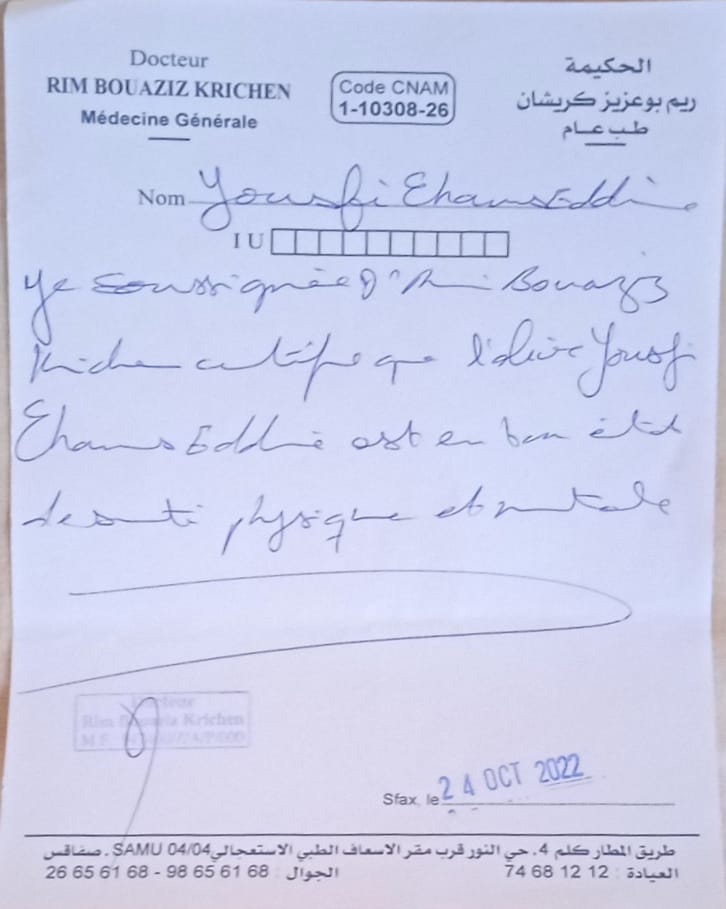 Docteur
RIM BOUAZIZ KRICHEN
Médecine Générale
Code CNAM
1-10308-26
الحكيمة
ريم بوعزيز كريشان
طب عام
Nom Yousfi Chams Eddine
I U
Je soussignée Dr Rim Bouaziz
Krichen certifie que l'élève Yousfi
Chams Eddine est en bon état
de santé physique et mentale
Docteur
Rim Bouaziz Krichen
M.F.
Sfax, le 24 OCT 2022
طريق المطار كلم 4. حي النور قرب مقر الاسعاف الطبي الاستعجالي SAMU 04/04. صفاقس
العيادة : 74 68 12 12 الجوال : 98 65 61 68 - 26 65 61 68